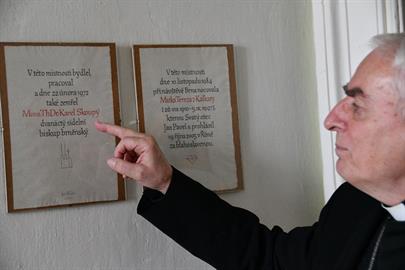 V této místnosti bydlel,
pracoval
a dne 22. února 1972
také zemřel
Msgr. ThDr. Karel Skoupý
dvanáctý sídelní
biskup brněnský
V této místnosti
dne 10. listopadu 1984
při návštěvě Brna nocovala
Matka Tereza z Kalkaty
kterou Svatý otec
Jan Pavel II. prohlásil
19. října 2003 v Římě
za blahoslavenou.